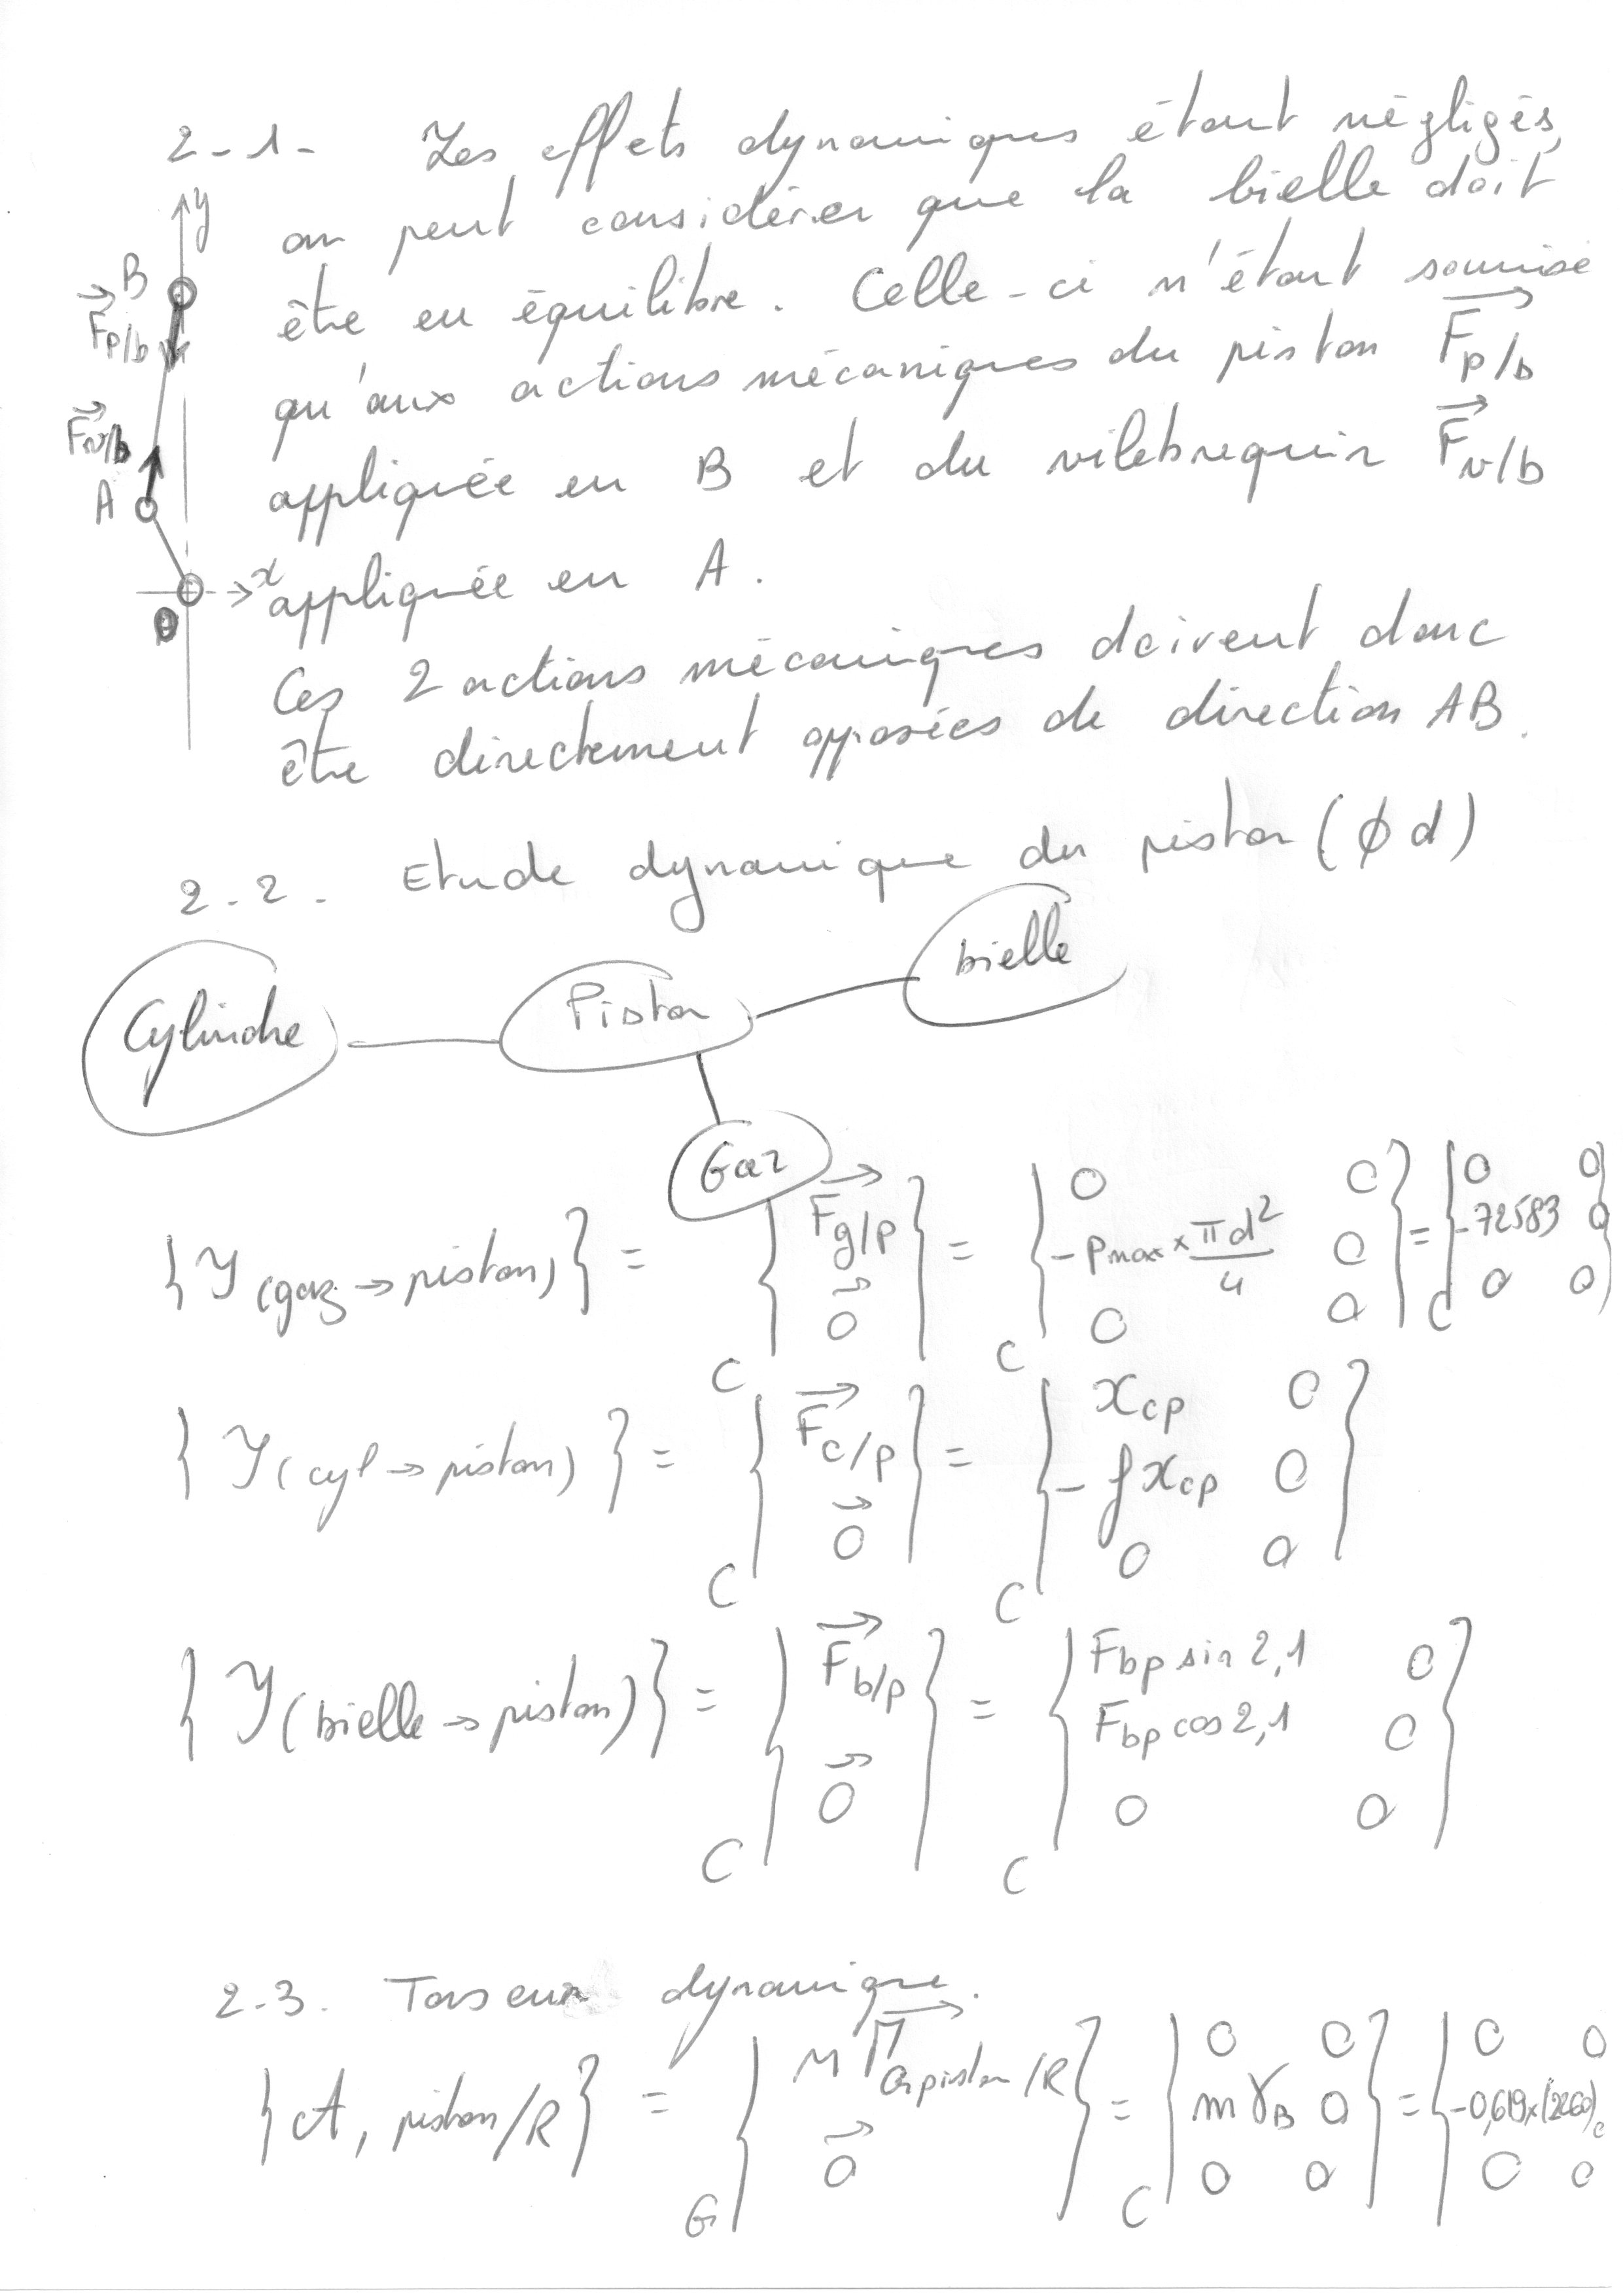 2-1- Les effets dynamiques étant négligés,
on peut considérer que la bielle doit
être en équilibre. Celle-ci n'étant soumise
qu'aux actions mécaniques du piston F p/b
appliquée en B et du vilebrequin F v/b
appliquée en A.
Ces 2 actions mécaniques doivent donc
être directement opposées de direction AB.
y
B
F p/b
F v/b
A
x
O
2-2- Etude dynamique du piston (ϕ d)
Cylindre Piston bielle
Gaz
{ T (gaz → piston) } = C { F g/p 0 } = C { 0 0 -Pmax × πd²/4 0 0 0 } = C { 0 0 -72583 0 0 0 }
{ T (cyl → piston) } = C { F c/p 0 } = C { Xcp 0 -f Xcp 0 0 0 }
{ T (bielle → piston) } = C { F b/p 0 } = C { Fbp sin 2,1 0 Fbp cos 2,1 0 0 0 }
2-3. Torseur dynamique.
{ A, piston/R } = G { M Γ G piston/R 0 } = C { 0 0 m γB 0 0 0 } = C { 0 0 -0,619×(2260) 0 0 }